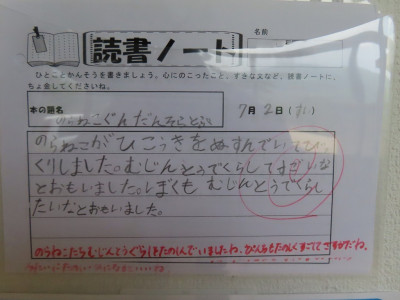 読書ノート
名前
ひとことかんそうを書きましょう。心にのこったこと、すきな文など、読書ノートに、
ちょ金してくださいね。
本の題名
のらねこぐんだんそらをとぶ
7月2日(
のらねこがひこうきをぬすんでいてびっ
くりしました。むじんとうでくらしてすごいな
とおもいました。ぼくもむじんとうでくらし
たいなとおもいました。
のらねこたちむじんとうぐらしはたのしんでいましたね。